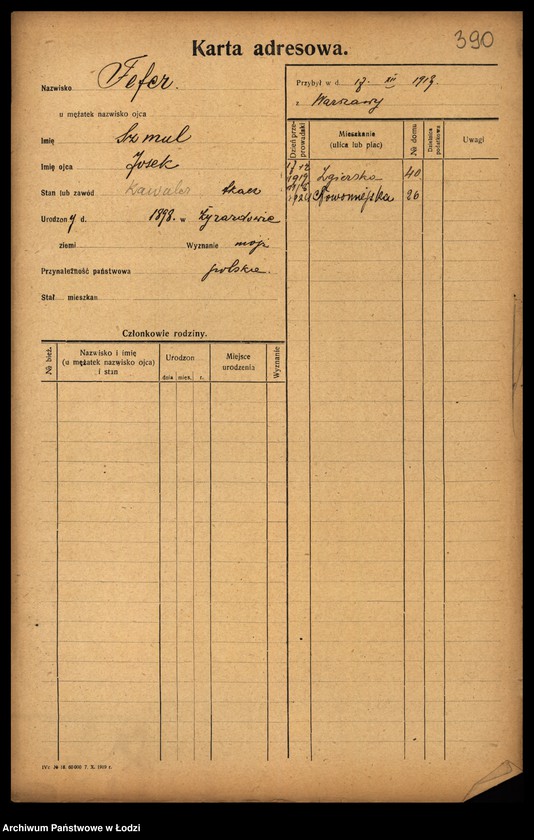 390
Karta adresowa.
Nazwisko Fefer.
u mężatek nazwisko ojca
Imię Szmul
Imię ojca Josek
Stan lub zawód Kawaler tkacz
Urodzony d. 1898. w Żyrardowie
ziemi Wyznanie mojż
Przynależność państwowa polska.
Stał mieszkan
Przybył w d. 17. XII 1919.
z Warszawy
Dzień przeprowadzki
Mieszkanie (ulica lub plac)
№ domu
Dzielnica podatkowa
Uwagi
17 12 1919 Zgierska 40
1924 Nowomiejska 26
Członkowie rodziny.
№ bież.
Nazwisko i imię
(u mężatek nazwisko ojca)
i stan
Urodzon
dnia mies. r.
Miejsce
urodzenia
Wyznanie
60000 7. X. 1919 r.
Archiwum Państwowe w Łodzi